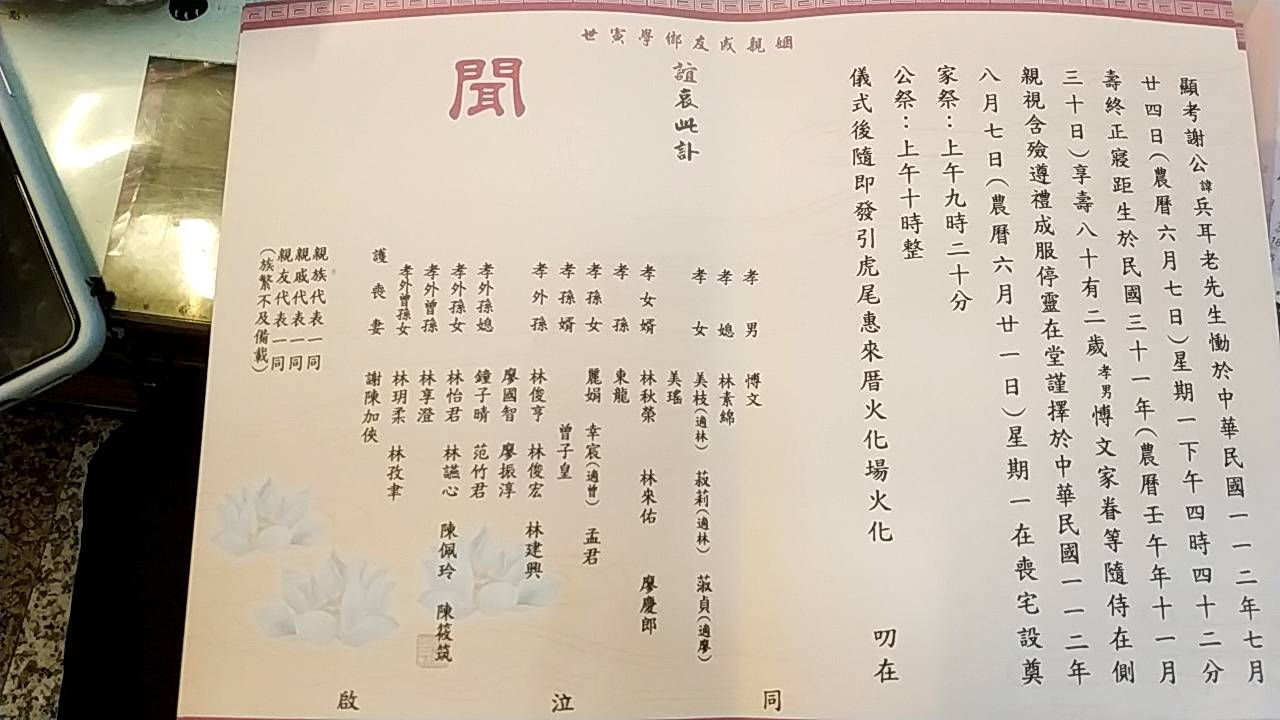 顯考謝公諱兵耳老先生慟於中華民國一一二年七月
廿四日(農曆六月七日)星期一下午四時四十二分
壽終正寢距生於民國三十一年(農曆壬午年十一月
三十日)享壽八十有二歲孝男博文家眷等隨侍在側
親視含殮遵禮成服停靈在堂謹擇於中華民國一一二年
八月七日(農曆六月廿一日)星期一在喪宅設奠
家祭：上午九時二十分
公祭：上午十時整
儀式後隨即發引虎尾惠來厝火化場火化 叨在
姻親戚友鄉學寅世
誼哀此訃
聞
孝男 博文
孝媳 林素綿
孝女 美枝(適林) 菽莉(適林) 菽貞(適廖)
美瑤
孝女婿 林秋榮 林來佑 廖慶郎
孝孫 東龍
孝孫女 麗娟 幸宸(適曾) 孟君
孝孫婿 曾子皇
孝外孫 林俊亨 林俊宏 林建興
廖國智 廖振淳
孝外孫媳 鐘子晴 范竹君
孝外孫女 林怡君 林讌心 陳佩玲 陳筱筑
孝外曾孫 林享澄
孝外曾孫女 林玥柔 林孜聿
護喪妻 謝陳加俠
親族代表一同
親戚代表一同
親友代表一同
(族繁不及備載)
同泣啟